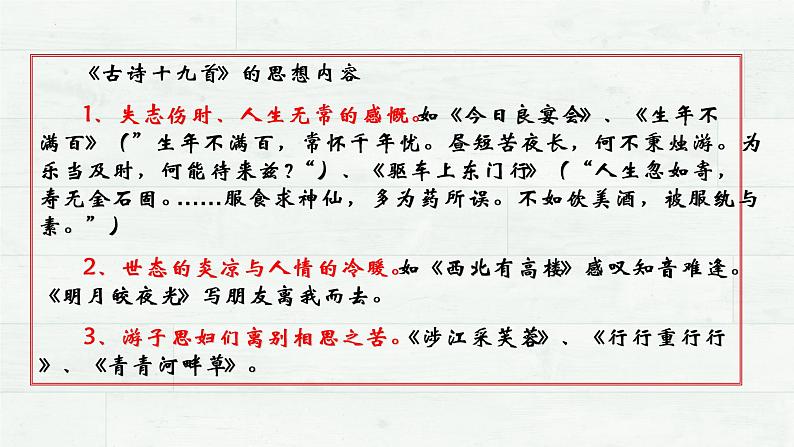 《古诗十九首》的思想内容
1、失志伤时、人生无常的感慨。如《今日良宴会》、《生年不
满百》（”生年不满百，常怀千年忧。昼短苦夜长，何不秉烛游。为
乐当及时，何能待来兹？“）、《驱车上东门行》（“人生忽如寄，
寿无金石固。……服食求神仙，多为药所误。不如饮美酒，被服纨与
素。”）
2、世态的炎凉与人情的冷暖。如《西北有高楼》感叹知音难逢。
《明月皎夜光》写朋友离我而去。
3、游子思妇们离别相思之苦。《涉江采芙蓉》、《行行重行行
》、《青青河畔草》。